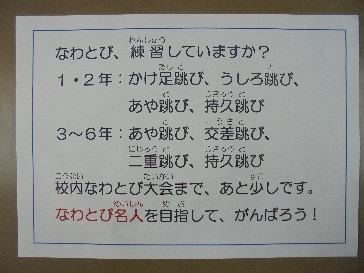 なわとび、練習していますか？
１・２年：かけ足跳び、うしろ跳び、
あや跳び、持久跳び
３～６年：あや跳び、交差跳び、
二重跳び、持久跳び
校内なわとび大会まで、あと少しです。
なわとび名人を目指して、がんばろう！